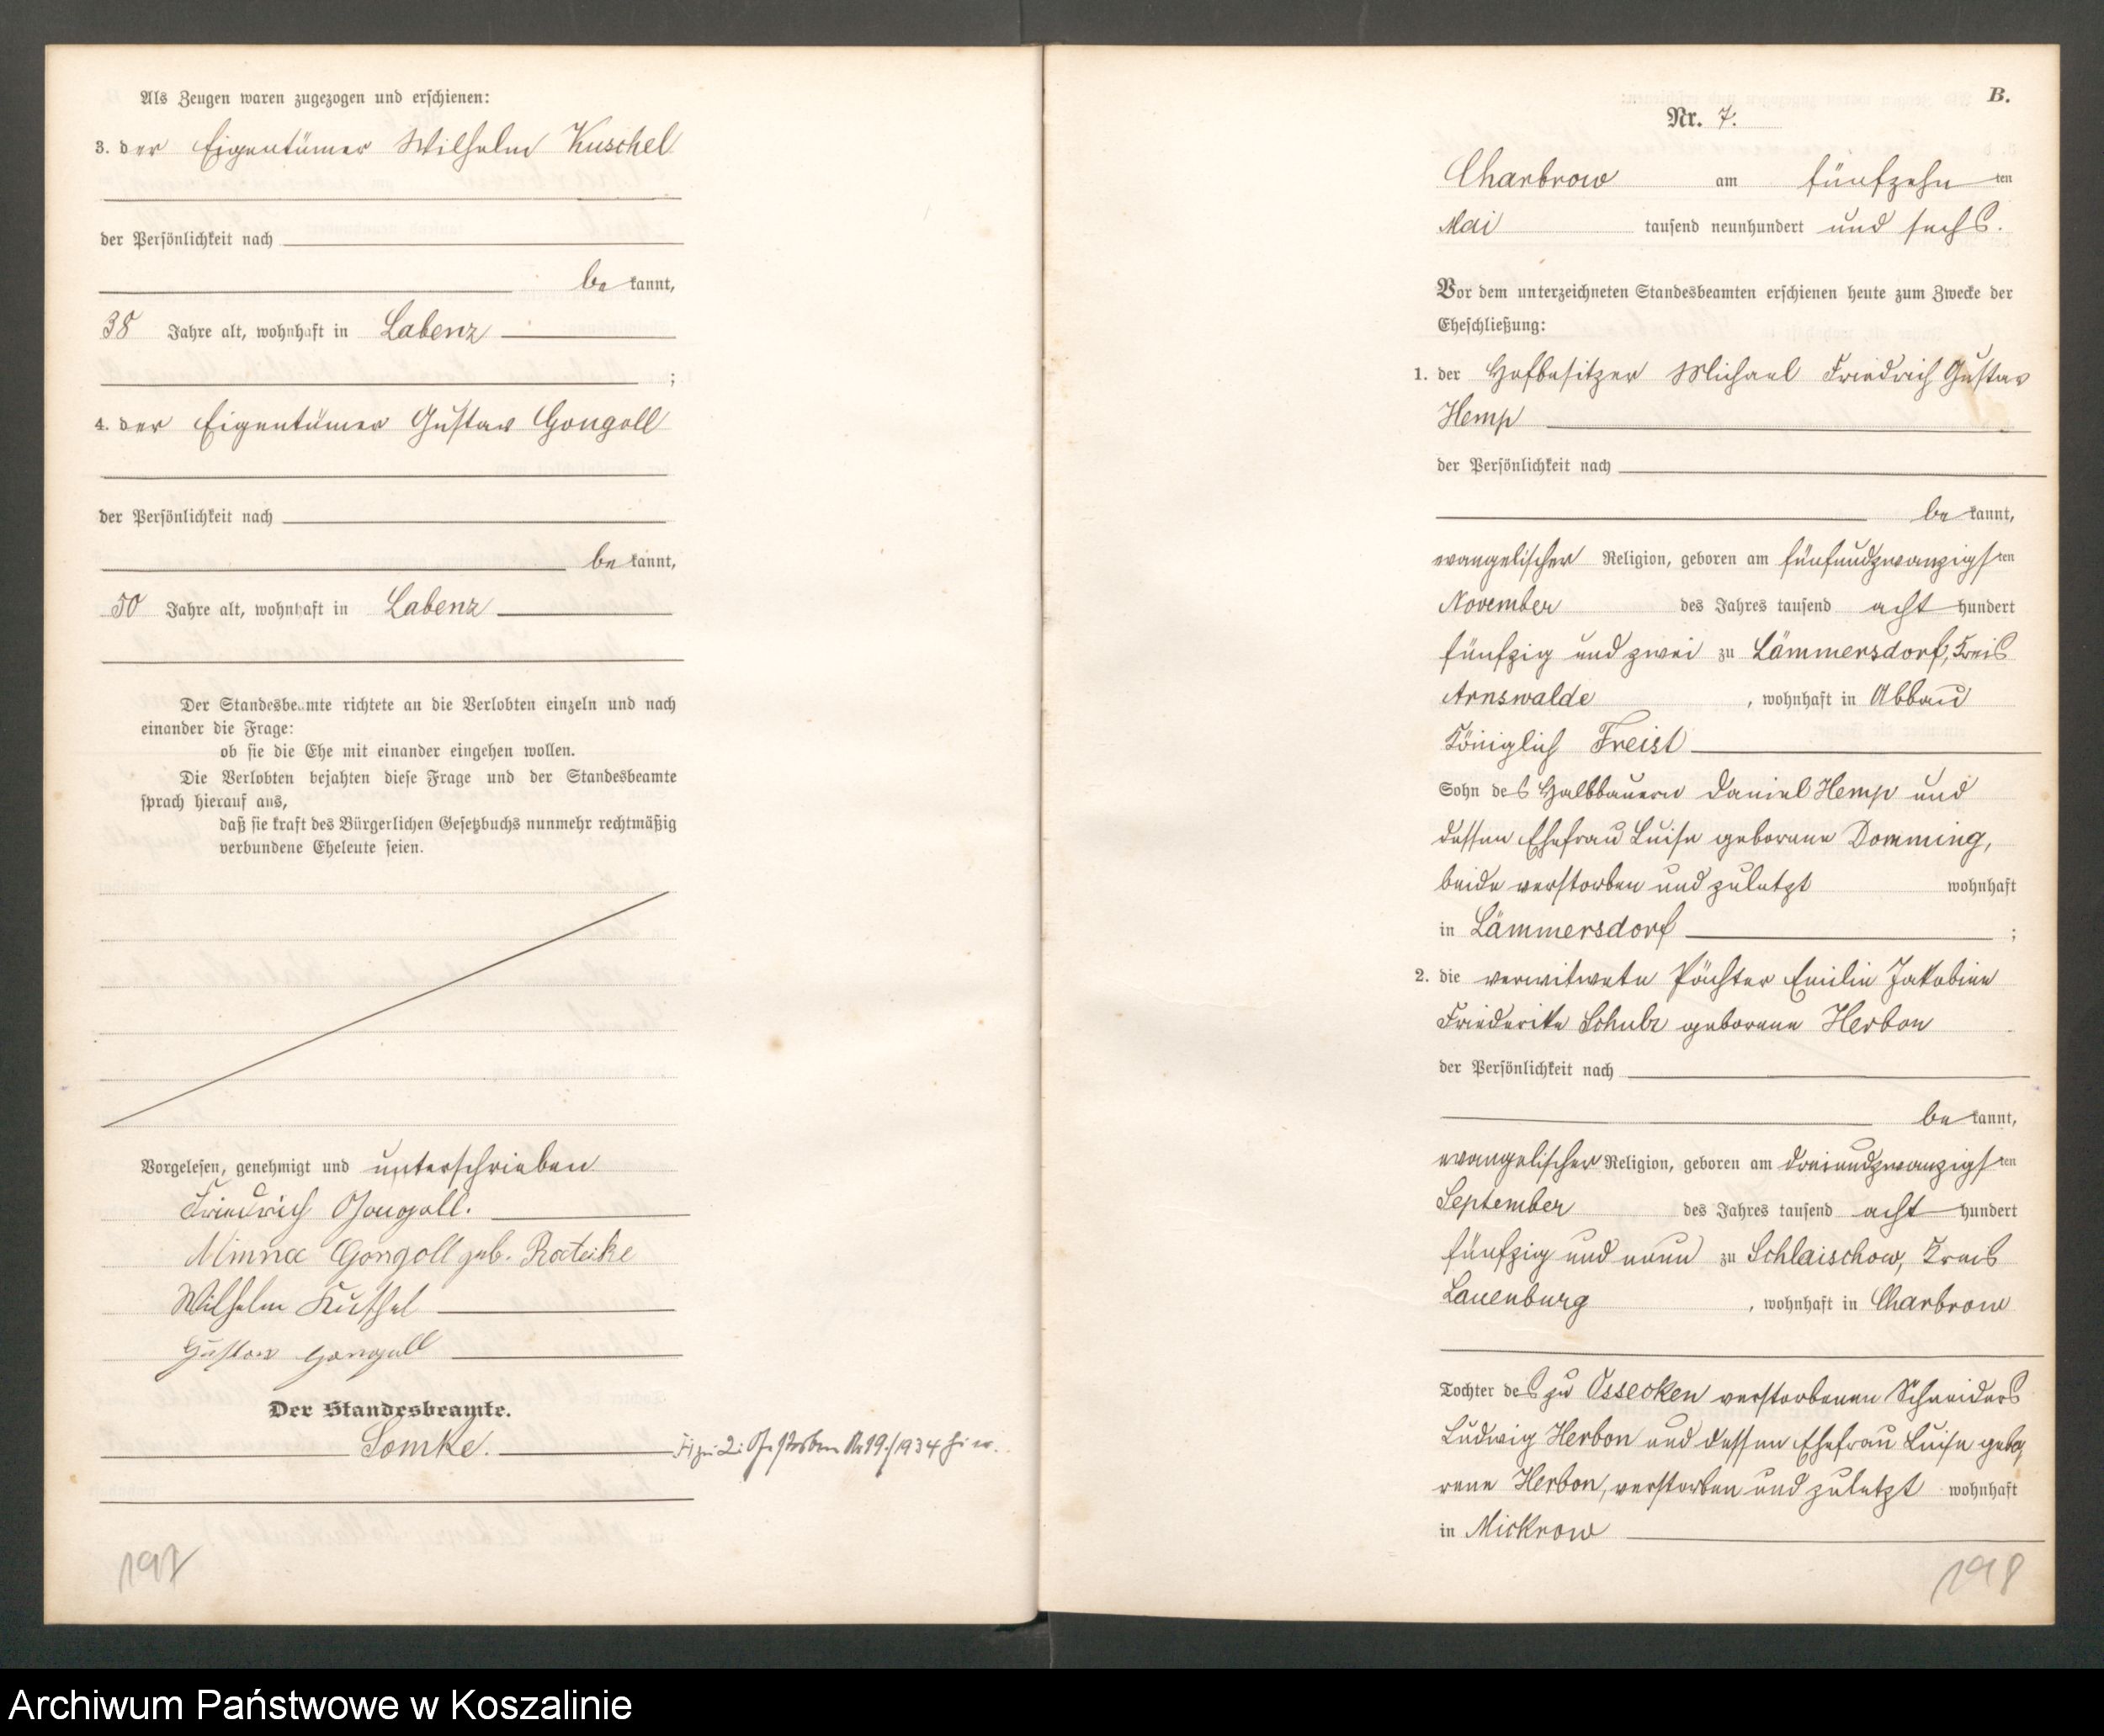 Als Zeugen waren zugezogen und erschienen:
3. der Eigentümer Wilhelm Kuschel
der Persönlichkeit nach
be kannt,
38 Jahre alt, wohnhaft in Labenz
;
4. der Eigentümer Gustav Gongoll
der Persönlichkeit nach
be kannt,
50 Jahre alt, wohnhaft in Labenz
Der Standesbeamte richtete an die Verlobten einzeln und nach
einander die Frage:
ob sie die Ehe mit einander eingehen wollen.
Die Verlobten bejahten diese Frage und der Standesbeamte
sprach hierauf aus,
daß sie kraft des Bürgerlichen Gesetzbuchs nunmehr rechtmäßig
verbundene Eheleute seien.
Vorgelesen, genehmigt und unterschrieben
Friedrich Gongoll.
Minna Gongoll geb. Rateike
Wilhelm Kuschel
Gustav Gongoll
Der Standesbeamte.
Lomke.
zu 2: Gestorben Nr 19/1934 hier.
197
B.
Nr. 7.
Charbrow am fünfzehn ten
Mai tausend neunhundert und sechs.
Vor dem unterzeichneten Standesbeamten erschienen heute zum Zwecke der
Eheschließung:
1. der Hofbesitzer Michael Friedrich Gustav
Hemp
der Persönlichkeit nach
be kannt,
evangelischer Religion, geboren am fünfundzwanzigsten
November des Jahres tausend acht hundert
fünfzig und zwei zu Lämmersdorf, Kreis
Arnswalde, wohnhaft in Abbau
Königlich Freist
Sohn des Halbbauern Daniel Hemp und
dessen Ehefrau Luise geborene Domming,
beide verstorben und zuletzt wohnhaft
in Lämmersdorf ;
2. die verwitwete Pächter Emilie Jakobine
Friederike Schulz geborene Herbon
der Persönlichkeit nach
be kannt,
evangelischer Religion, geboren am dreiundzwanzigsten
September des Jahres tausend acht hundert
fünfzig und neun zu Schlaischow, Kreis
Lauenburg, wohnhaft in Charbrow
Tochter des zu Ossecken verstorbenen Schneiders
Ludwig Herbon und dessen Ehefrau Luise gebo,
rene Herbon, verstorben und zuletzt wohnhaft
in Mickrow
198
Archiwum Państwowe w Koszalinie